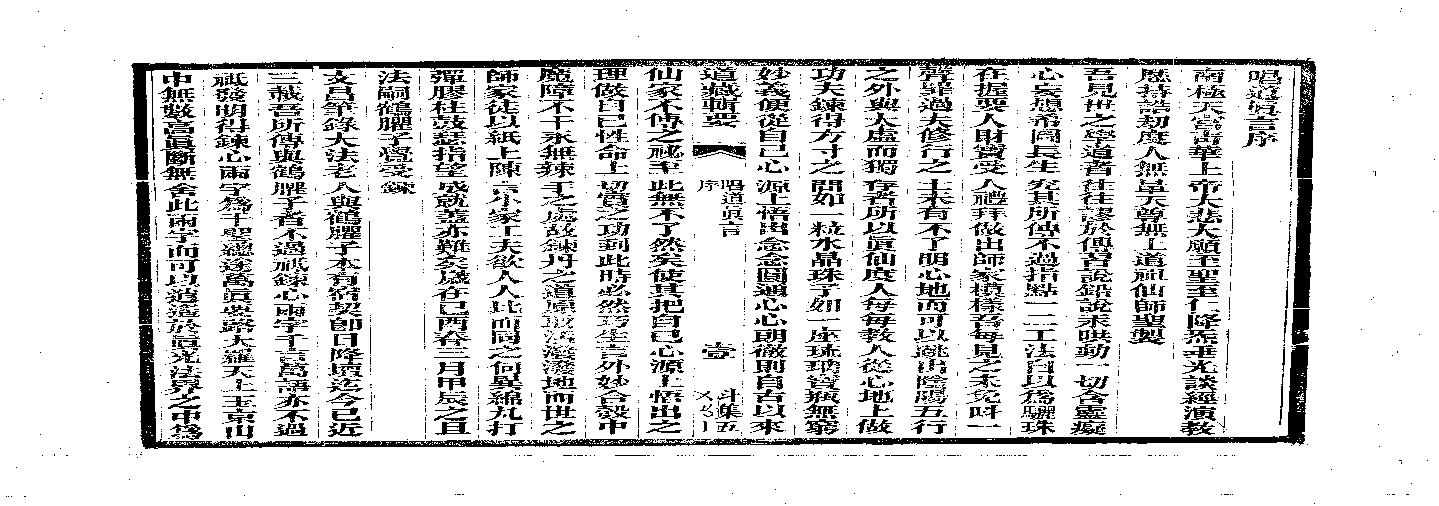 唱道真言序
南極天宮青華上帝大悲大願至聖至仁降炁垂光談經演教
歷持誥劫度人無量天尊無上道祖仙師聖製
吾見世之學道者往往謬於傳書說鉛說汞哄動一切含靈癡
心妄想希圖長生究其所傳不過指點一二工法自以為驪珠
在握要人財寶受人禮拜做出師家模樣吾每見之未免呌一
聲罪過夫修行之士未有不了明心地而可以跳出陰陽五行
之外與太虛而獨存者所以真仙度人每每教人從心地上做
功夫鍊得方寸之間如一粒水晶珠子如一座琉璃寶瓶無窮
妙義便從自己心源上悟出念念圓通心心朗徹則自古以來
道藏輯要 唱道真言序 壹 斗集五
仙家不傳之祕至此無不了然矣使其把自己心源上悟出之
理做自己性命上切實之功到此時必然巧生言外妙合彀中
魔障不干永無疎于之處故鍊丹之道原是活潑潑地而世之
師家徒以紙上陳言小家工夫欲人人此而同之何異綿九打
彈膠柱鼓瑟指望成就蓋亦難矣歲在己酉春三月甲辰之旦
法嗣鶴臞子覺受錄
文昌筆錄大法老人與鶴臞子本有宿契卽日降壇迄今已近
三載吾所傳與鶴臞子者不過祗鍊心兩字千言萬語亦不過
祗發明得鍊心兩字為千聖總途萬真要路大羅天上玉京山
中無數高真斷無舍此兩字而可以逍遙於道光法界之中為